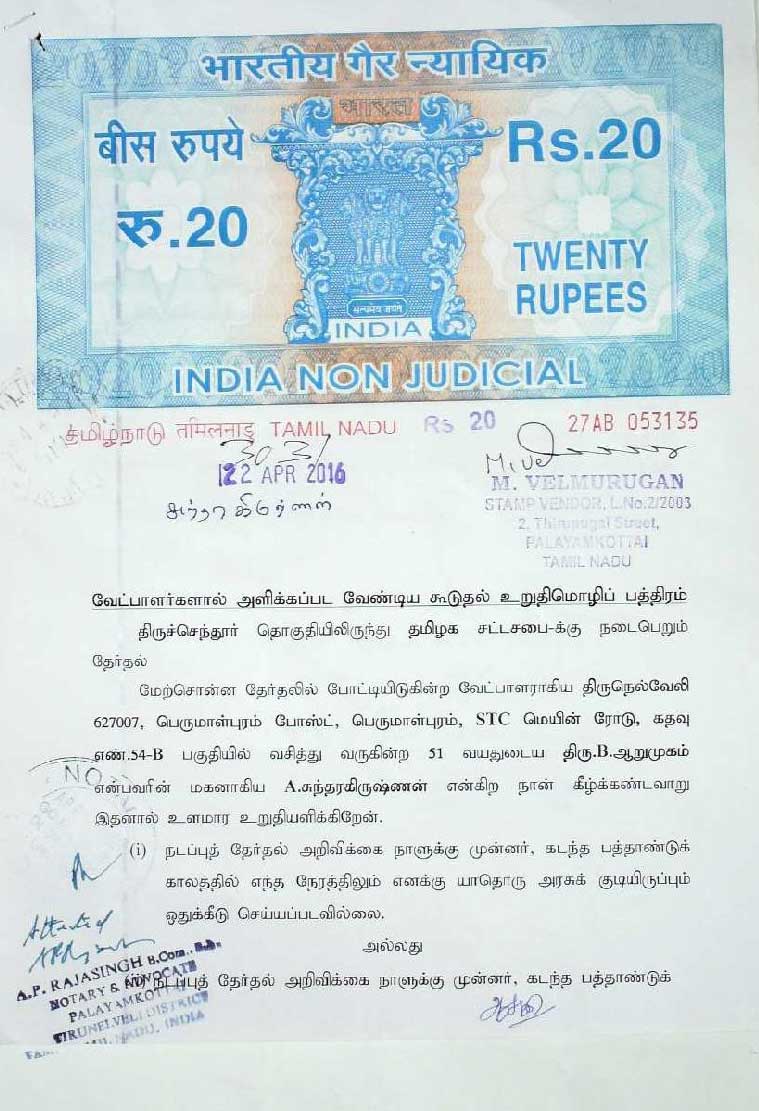 भारतीय गैर न्यायिक
भारत
बीस रुपये
Rs.20
रु.20
TWENTY
RUPEES
सत्यमेव जयते
INDIA
INDIA NON JUDICIAL
தமிழ்நாடு तमिलनाडु TAMIL NADU Rs 20 27AB 053135
3031
22 APR 2016
சுந்தரகிருஷ்ணன்
M. Vel
M. VELMURUGAN
STAMP VENDOR, L.No.2/2003
2, Thirupugal Street,
PALAYAMKOTTAI
TAMIL NADU
வேட்பாளர்களால் அளிக்கப்பட வேண்டிய கூடுதல் உறுதிமொழிப் பத்திரம்
திருச்செந்தூர் தொகுதியிலிருந்து தமிழக சட்டசபை-க்கு நடைபெறும்
தேர்தல்
மேற்சொன்ன தேர்தலில் போட்டியிடுகின்ற வேட்பாளராகிய திருநெல்வேலி
627007, பெருமாள்புரம் போஸ்ட், பெருமாள்புரம், STC மெயின் ரோடு, கதவு
எண்.54-B பகுதியில் வசித்து வருகின்ற 51 வயதுடைய திரு.B.ஆறுமுகம்
என்பவரின் மகனாகிய A.சுந்தரகிருஷ்ணன் என்கிற நான் கீழ்க்கண்டவாறு
இதனால் உளமார உறுதியளிக்கிறேன்.
(i) நடப்புத் தேர்தல் அறிவிக்கை நாளுக்கு முன்னர், கடந்த பத்தாண்டுக்
காலத்தில் எந்த நேரத்திலும் எனக்கு யாதொரு அரசுக் குடியிருப்பும்
ஒதுக்கீடு செய்யப்படவில்லை.
அல்லது
(ii) நடப்புத் தேர்தல் அறிவிக்கை நாளுக்கு முன்னர், கடந்த பத்தாண்டுக்
Attested
A.P. RAJASINGH B.Com., B.L.
NOTARY & ADVOCATE
PALAYAMKOTTAI
TIRUNELVELI DISTRICT
TAMIL NADU, INDIA